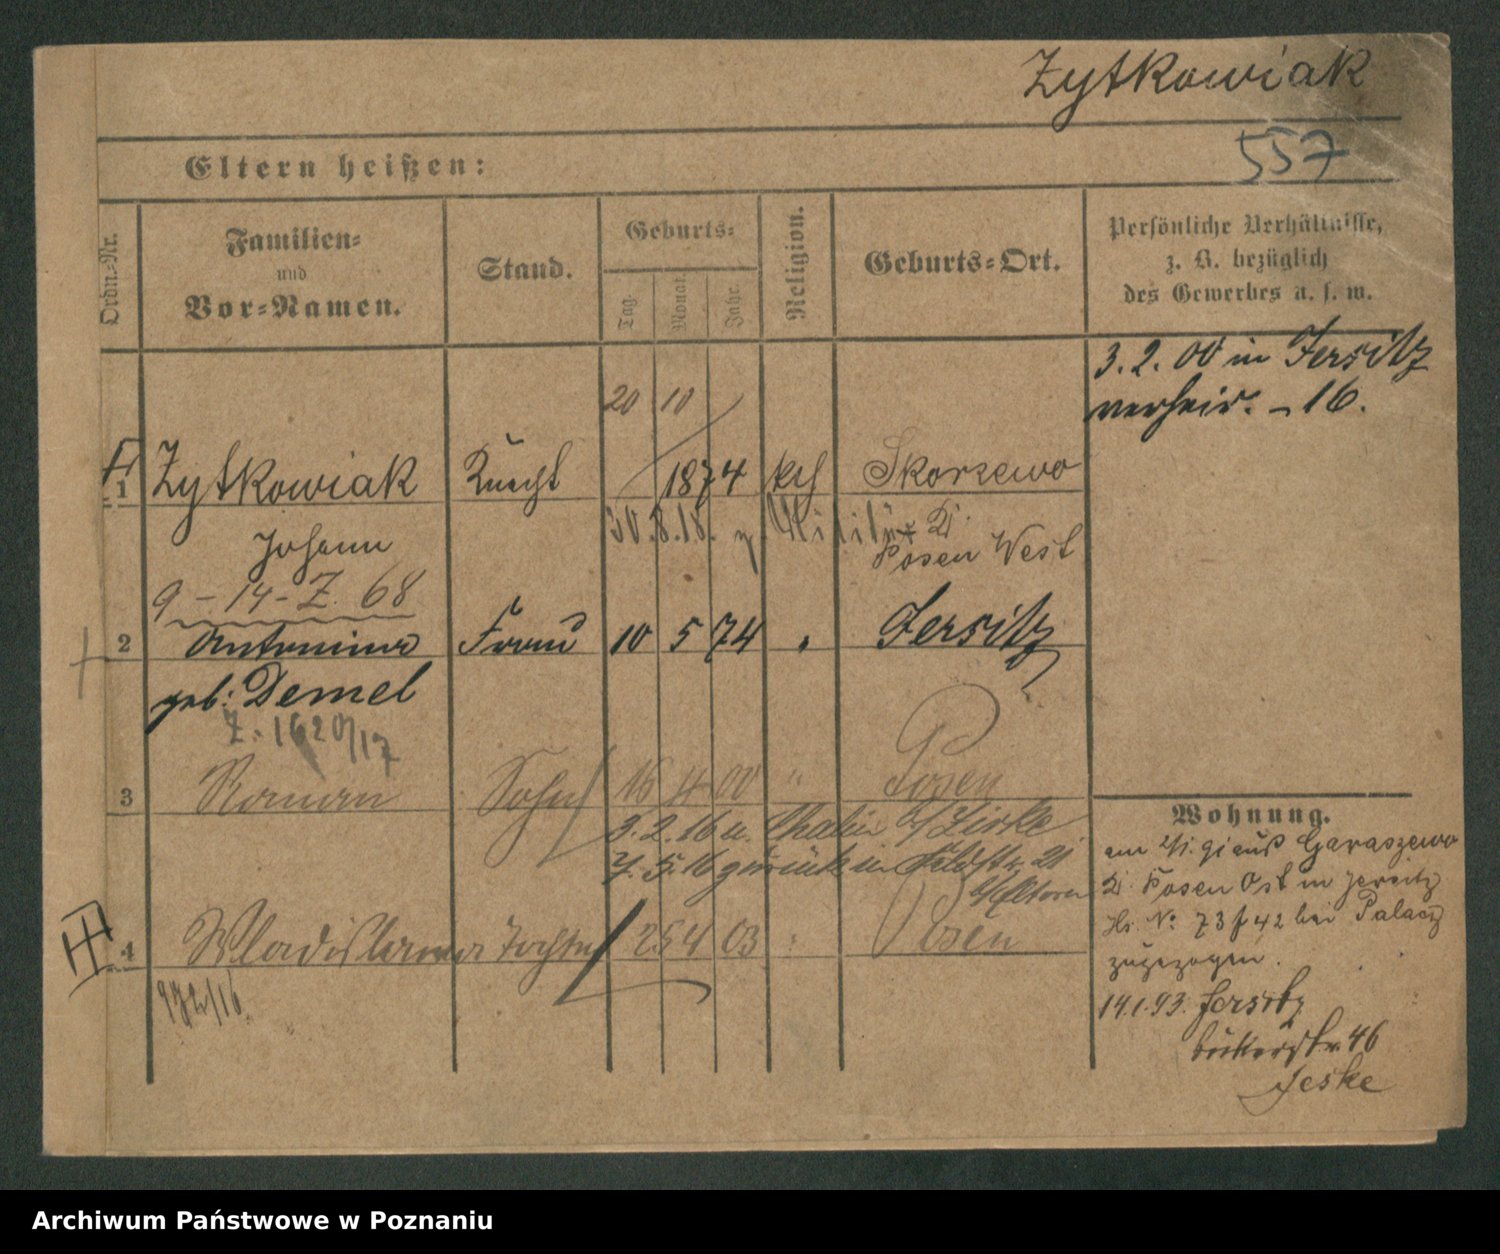 Zytkowiak
557
Eltern heißen:
Ordn.-Nr.
Familien- und Vor-Namen.
Stand.
Geburts-
Tag.
Monat.
Jahr.
Religion.
Geburts-Ort.
Persönliche Verhältnisse,
z. B. bezüglich
des Gewerbes u. s. w.
3. 2. 00 in Jersitz
verheir. - 16.
20 10
1 Zytkowiak Knecht 1874 kth Skorzewo
Johann
30. 8. 18. z. Militär
Posen West
9 - 14 - Z. 68
2 Antonina Frau 10 5 74 " Jersitz
geb: Demel
Z. 1620/17
3 Roman Sohn 16 4 00 " Posen
3. 2. 16 n.
7. 5. 16 zurück in Feldstr. 21
b/Eltern
4 Wladislawa Tochter 25 4 03 " Posen
972/16.
Wohnung.
am aus Garaszewo
Kr. Posen Ost in Jersitz
Hs. No. 73 f 42 bei Palacz
zugezogen.
14.1.93. Jersitz
46
Jeske
Archiwum Państwowe w Poznaniu